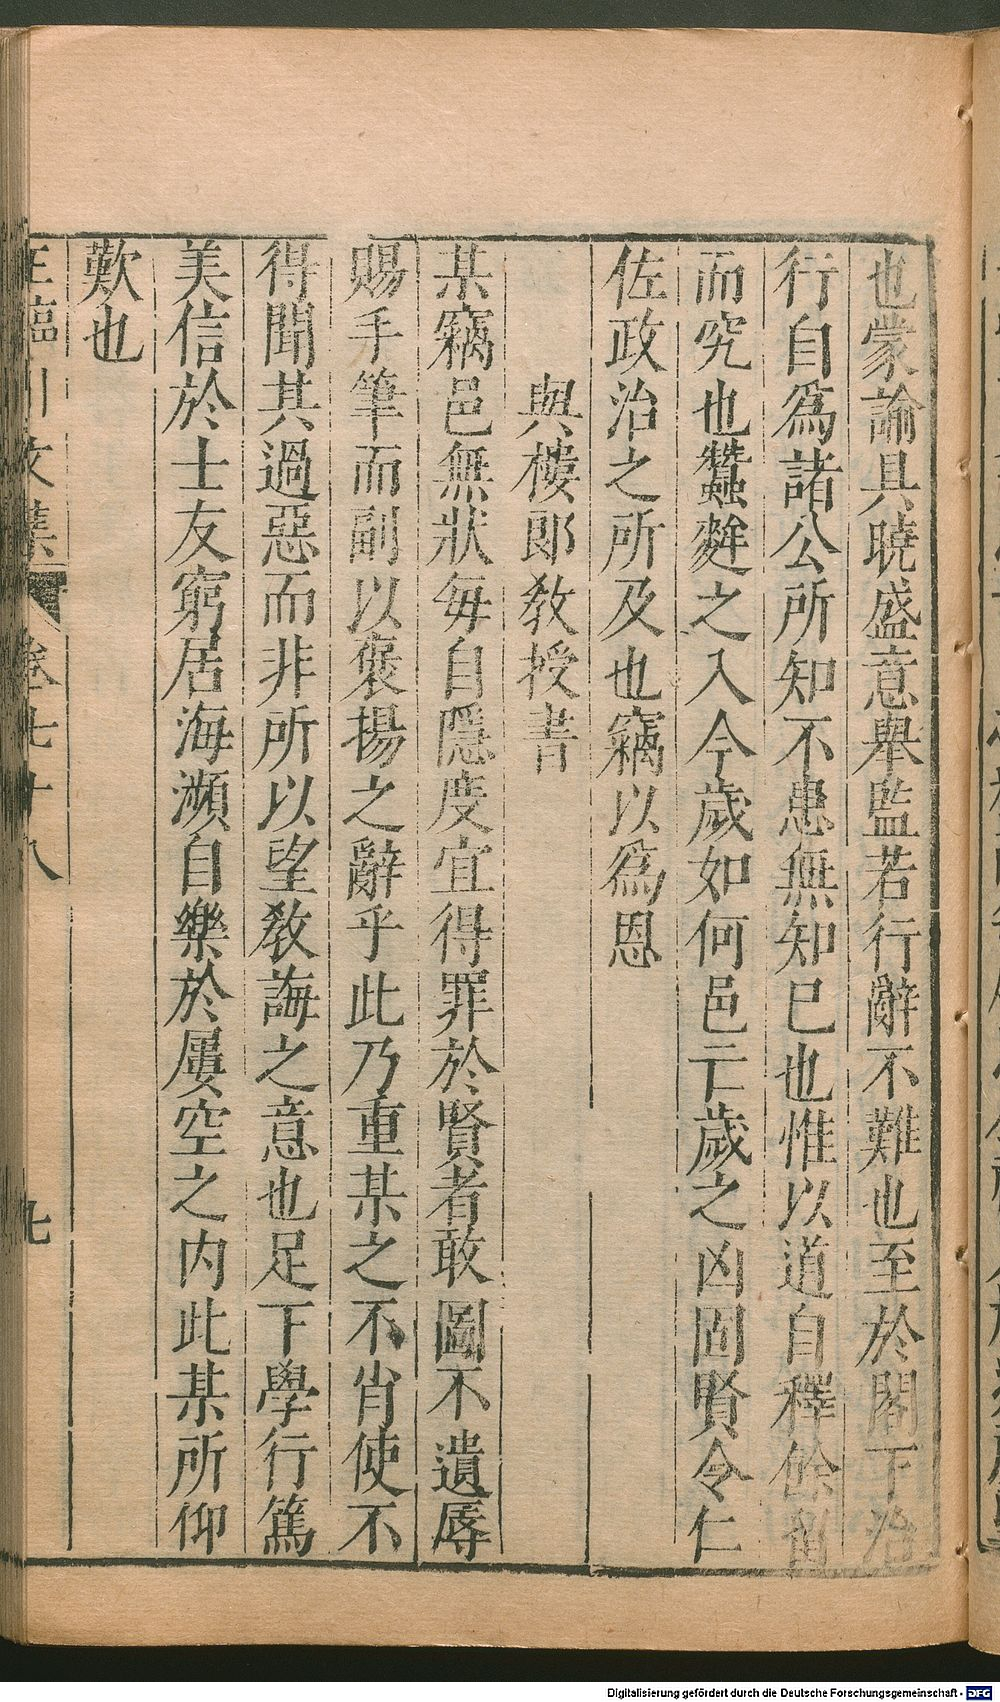 也蒙諭具曉盛意舉監若行辭不難也至於閣下治
行自爲諸公所知不患無知已也惟以道自釋餘留
而究也蠶麰之入今歲如何邑亡歲之凶固賢令仁
佐政治之所及也竊以爲恩
與樓郎敎授書
某竊邑無狀每自隱度宜得罪於賢者敢圖不遺辱
賜手筆而副以褒揚之辭乎此乃重某之不肖使不
得聞其過惡而非所以望敎誨之意也足下學行篤
美信於士友窮居海瀕自樂於屢空之內此某所仰
歎也
王臨川文集 卷七十八 九
Digitalisierung gefördert durch die Deutsche Forschungsgemeinschaft - DFG